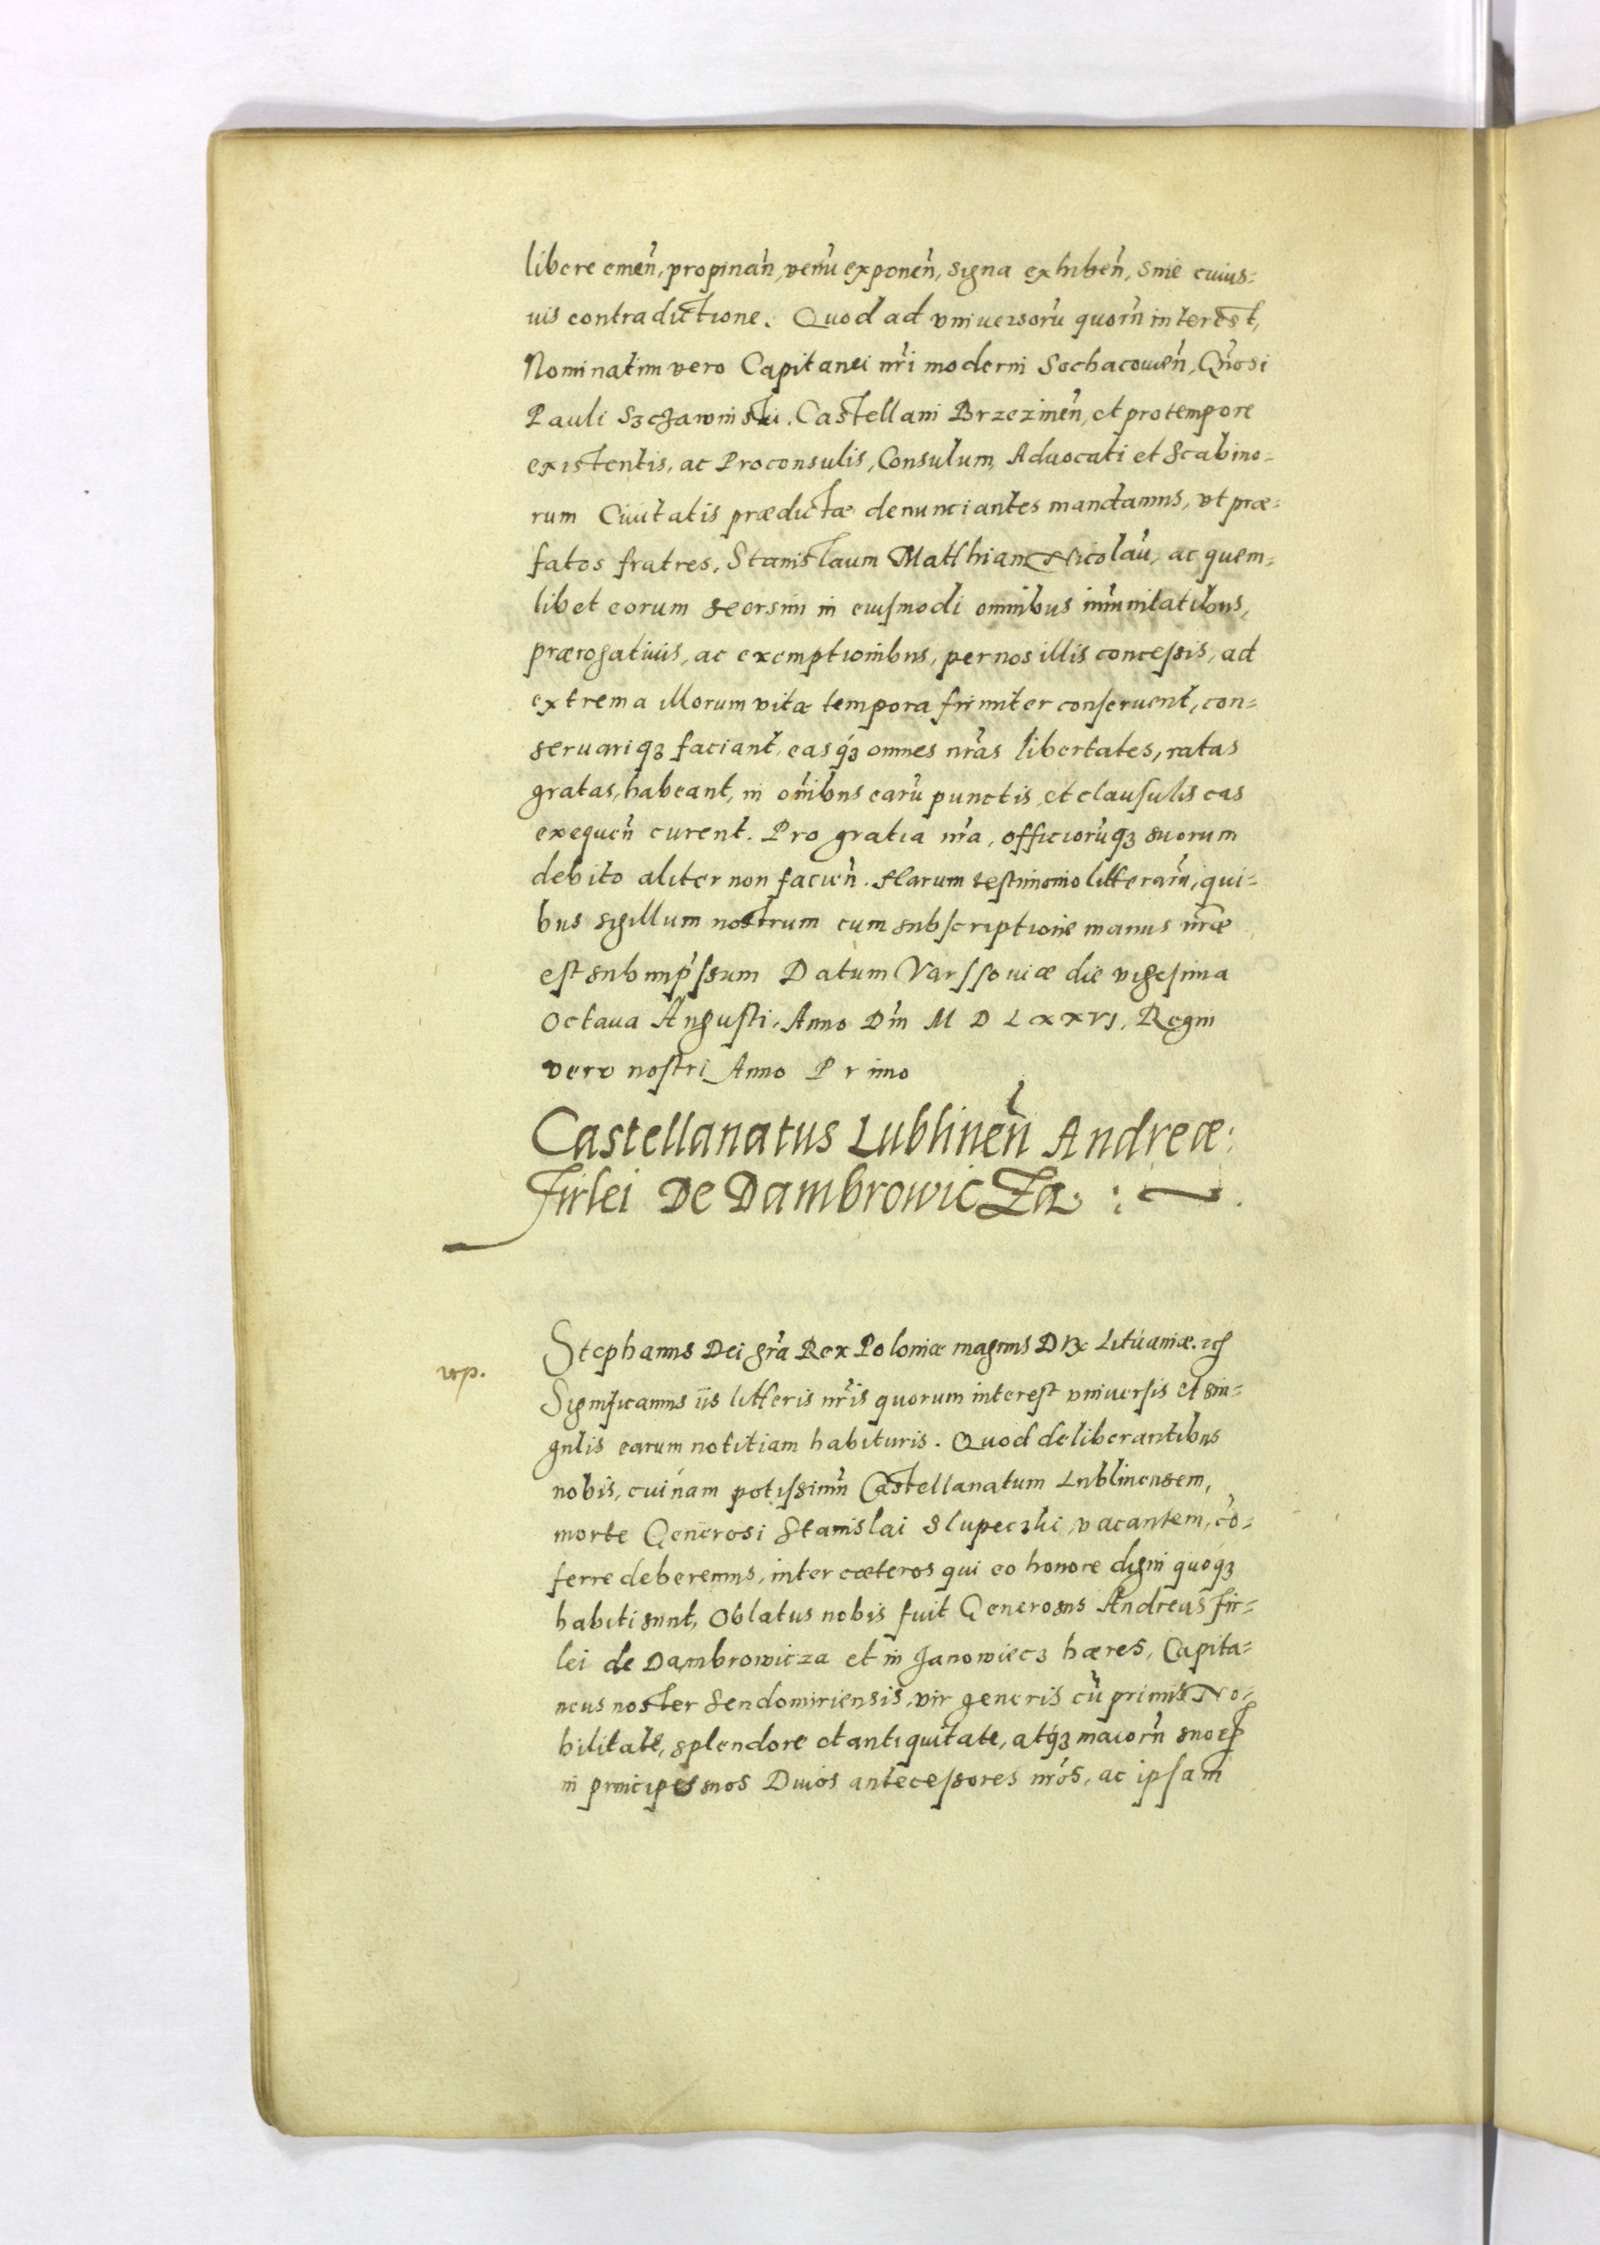 libere emeñ, propinañ, venũ exponeñ, signa exhibeñ, sine cuius=
uis contradictione. Quod ad vniuersorũ quorũ interest,
Nominatim vero Capitanei nr̃i moderni Sochacouieñ, Gñosi
Pauli Szczawinski. Castellani Brzezineñ, et pro tempore
existentis, ac Proconsulis, Consulum, Aduocati et Scabino=
rum Ciuitatis prædictæ denunciantes mandamus, vt præ=
fatos fratres, Stanislaum Matthiam Nicolaũ, ac quem=
libet eorum seorsim in eiusmodi omnibus imũnitatibus,
prærogatiuis, ac exemptionibus, per nos illis concessis, ad
extrema illorum vitæ tempora firmiter conseruent, con=
seruariq3 faciant, easq3 omnes nr̃as libertates, ratas
gratas, habeant, in om̃ibus earũ punctis, et clausulis eas
exequeñ curent. Pro gratia nr̃a, officiorũq3 suorum
debito aliter non facieñ. Harum testimonio litterarũ, qui=
bus sigillum nostrum cum subscriptione manus nr̃æ
est subimp̃ssum Datum Varssouiæ die vigesima
Octaua Augusti, Anno Dñi M D LXXVI, Regni
vero nostri Anno Primo
Castellanatus Lublineñ Andreæ
Firlei De Dambrowicza
Stephanus Dei gr̃a Rex Poloniæ magnus Dux Lituaniæ. etc
Significamus iis litteris nr̃is quorum interest vniuersis et sin=
gulis earum notitiam habituris. Quod deliberantibus
nobis, cuinam potissimũ Castellanatum Lublinensem,
morte Generosi Stanislai Slupeczki vacantem, cõ=
ferre deberemus, inter cæteros qui eo honore digni quoq3
habiti sunt, Oblatus nobis fuit Generosus Andreas Fir=
lei de Dambrowicza et in Janowiecz hæres, Capita=
neus noster Sendomiriensis, vir generis cũ primis No=
bilitate, splendore et antiquitate, atq3 maiorũ suoꝝ
in principes suos Diuos antecessores nr̃os, ac ipsam